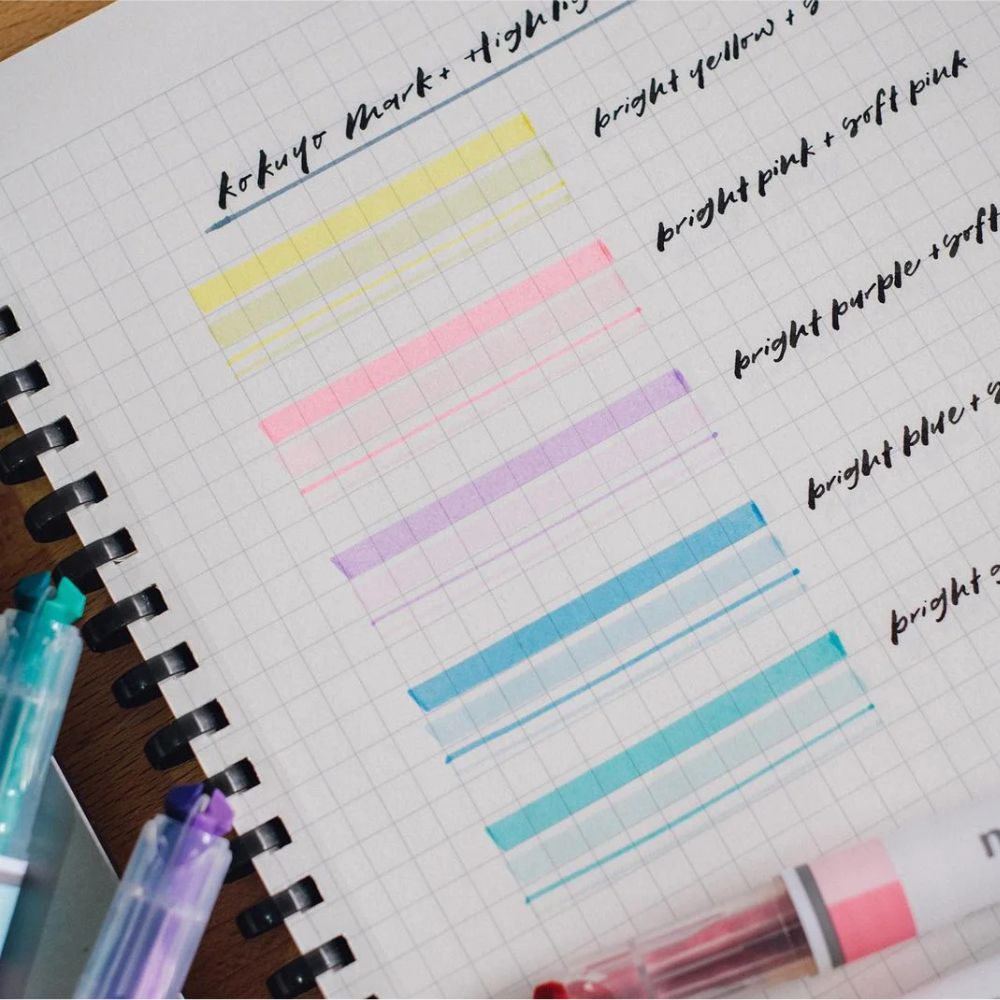 kokuyo mark+
bright yellow +
bright pink + soft pink
bright purple +soft
bright blue +
bright